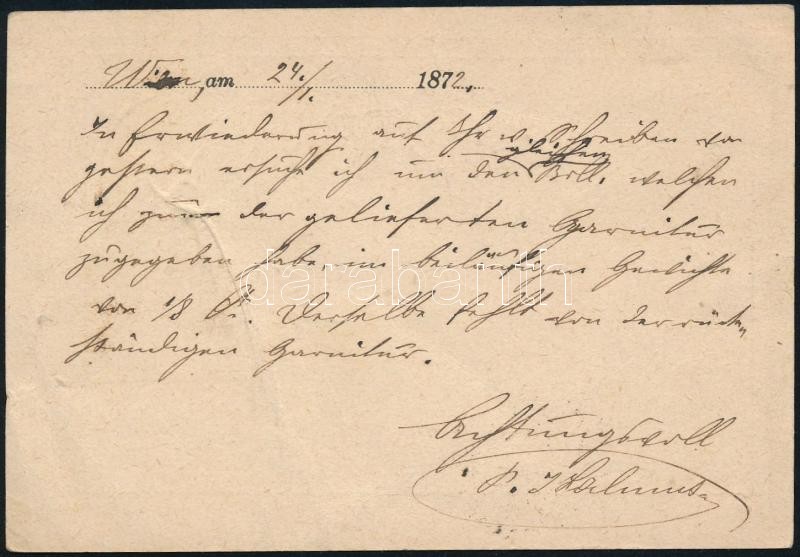 Wien, am 24./1. 1872.
In Erwiederung auf Ihr w. Schreiben von
gestern ersuche ich um den gleichen Boll. welchen
ich zur der gelieferten Garnitur
zugegeben habe im beiläufigen Gewichte
von 1/8 Ct. Derselbe fehlt von der rück-
ständigen Garnitur.
Achtungsvoll
darabanth